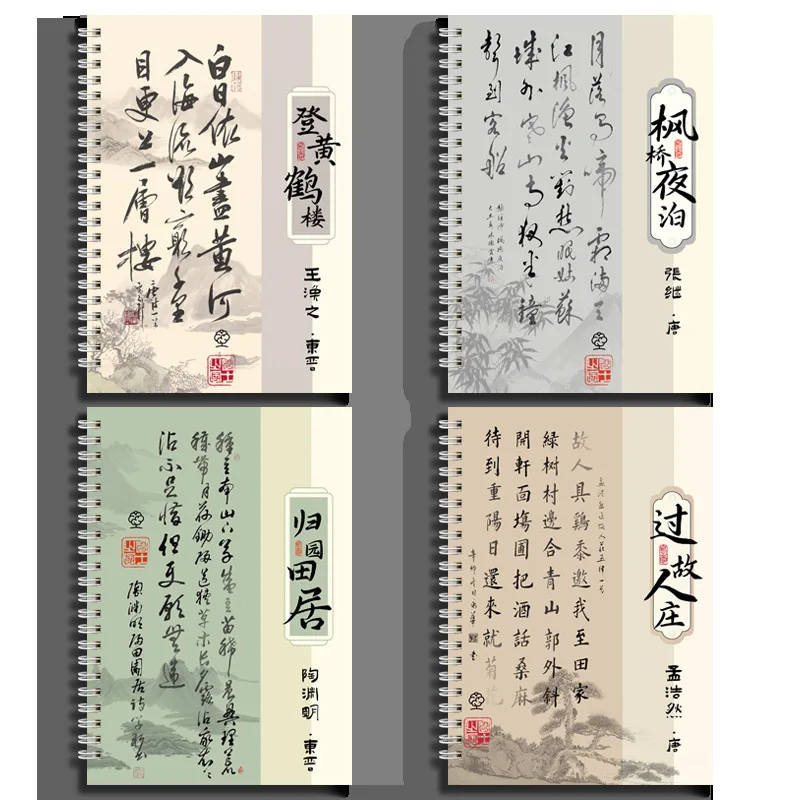 登黄鹤楼
王渙之·東晋
白日依山盡黄河
入海流欲窮千里
目更上一層樓
枫桥夜泊
張继·唐
月落烏啼霜滿天
江楓漁火對愁眠姑蘇
城外寒山寺夜半鐘
聲到客船
归园田居
陶渊明·東晋
種豆南山下草盛豆苗稀晨興理荒
穢帶月荷鋤歸道狹草木長夕露沾我衣衣
沾不足惜但使願無違
过故人庄
孟浩然·唐
故人具鷄黍邀我至田家
緑树村邊合青山郭外斜
開軒面場圃把酒話桑麻
待到重陽日還來就菊花